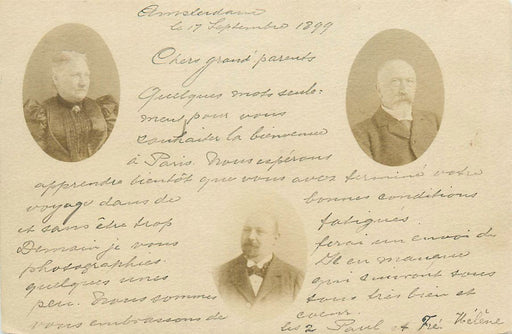 Amsterdam
le 17 Septembre 1899
Chers grand parents
Quelques mots seule-
ment pour vous
souhaiter la bienvenue
à Paris. Nous espérons
apprendre bientôt que vous avez terminé votre
voyage dans de bonnes conditions
et sans être trop fatigués.
Demain je vous ferai un envoi de
photographies. Il en manque
quelques unes qui suivront sous
peu. Nous sommes tous très bien et
vous embrassons de coeur.
les 2 Paul et Hélène